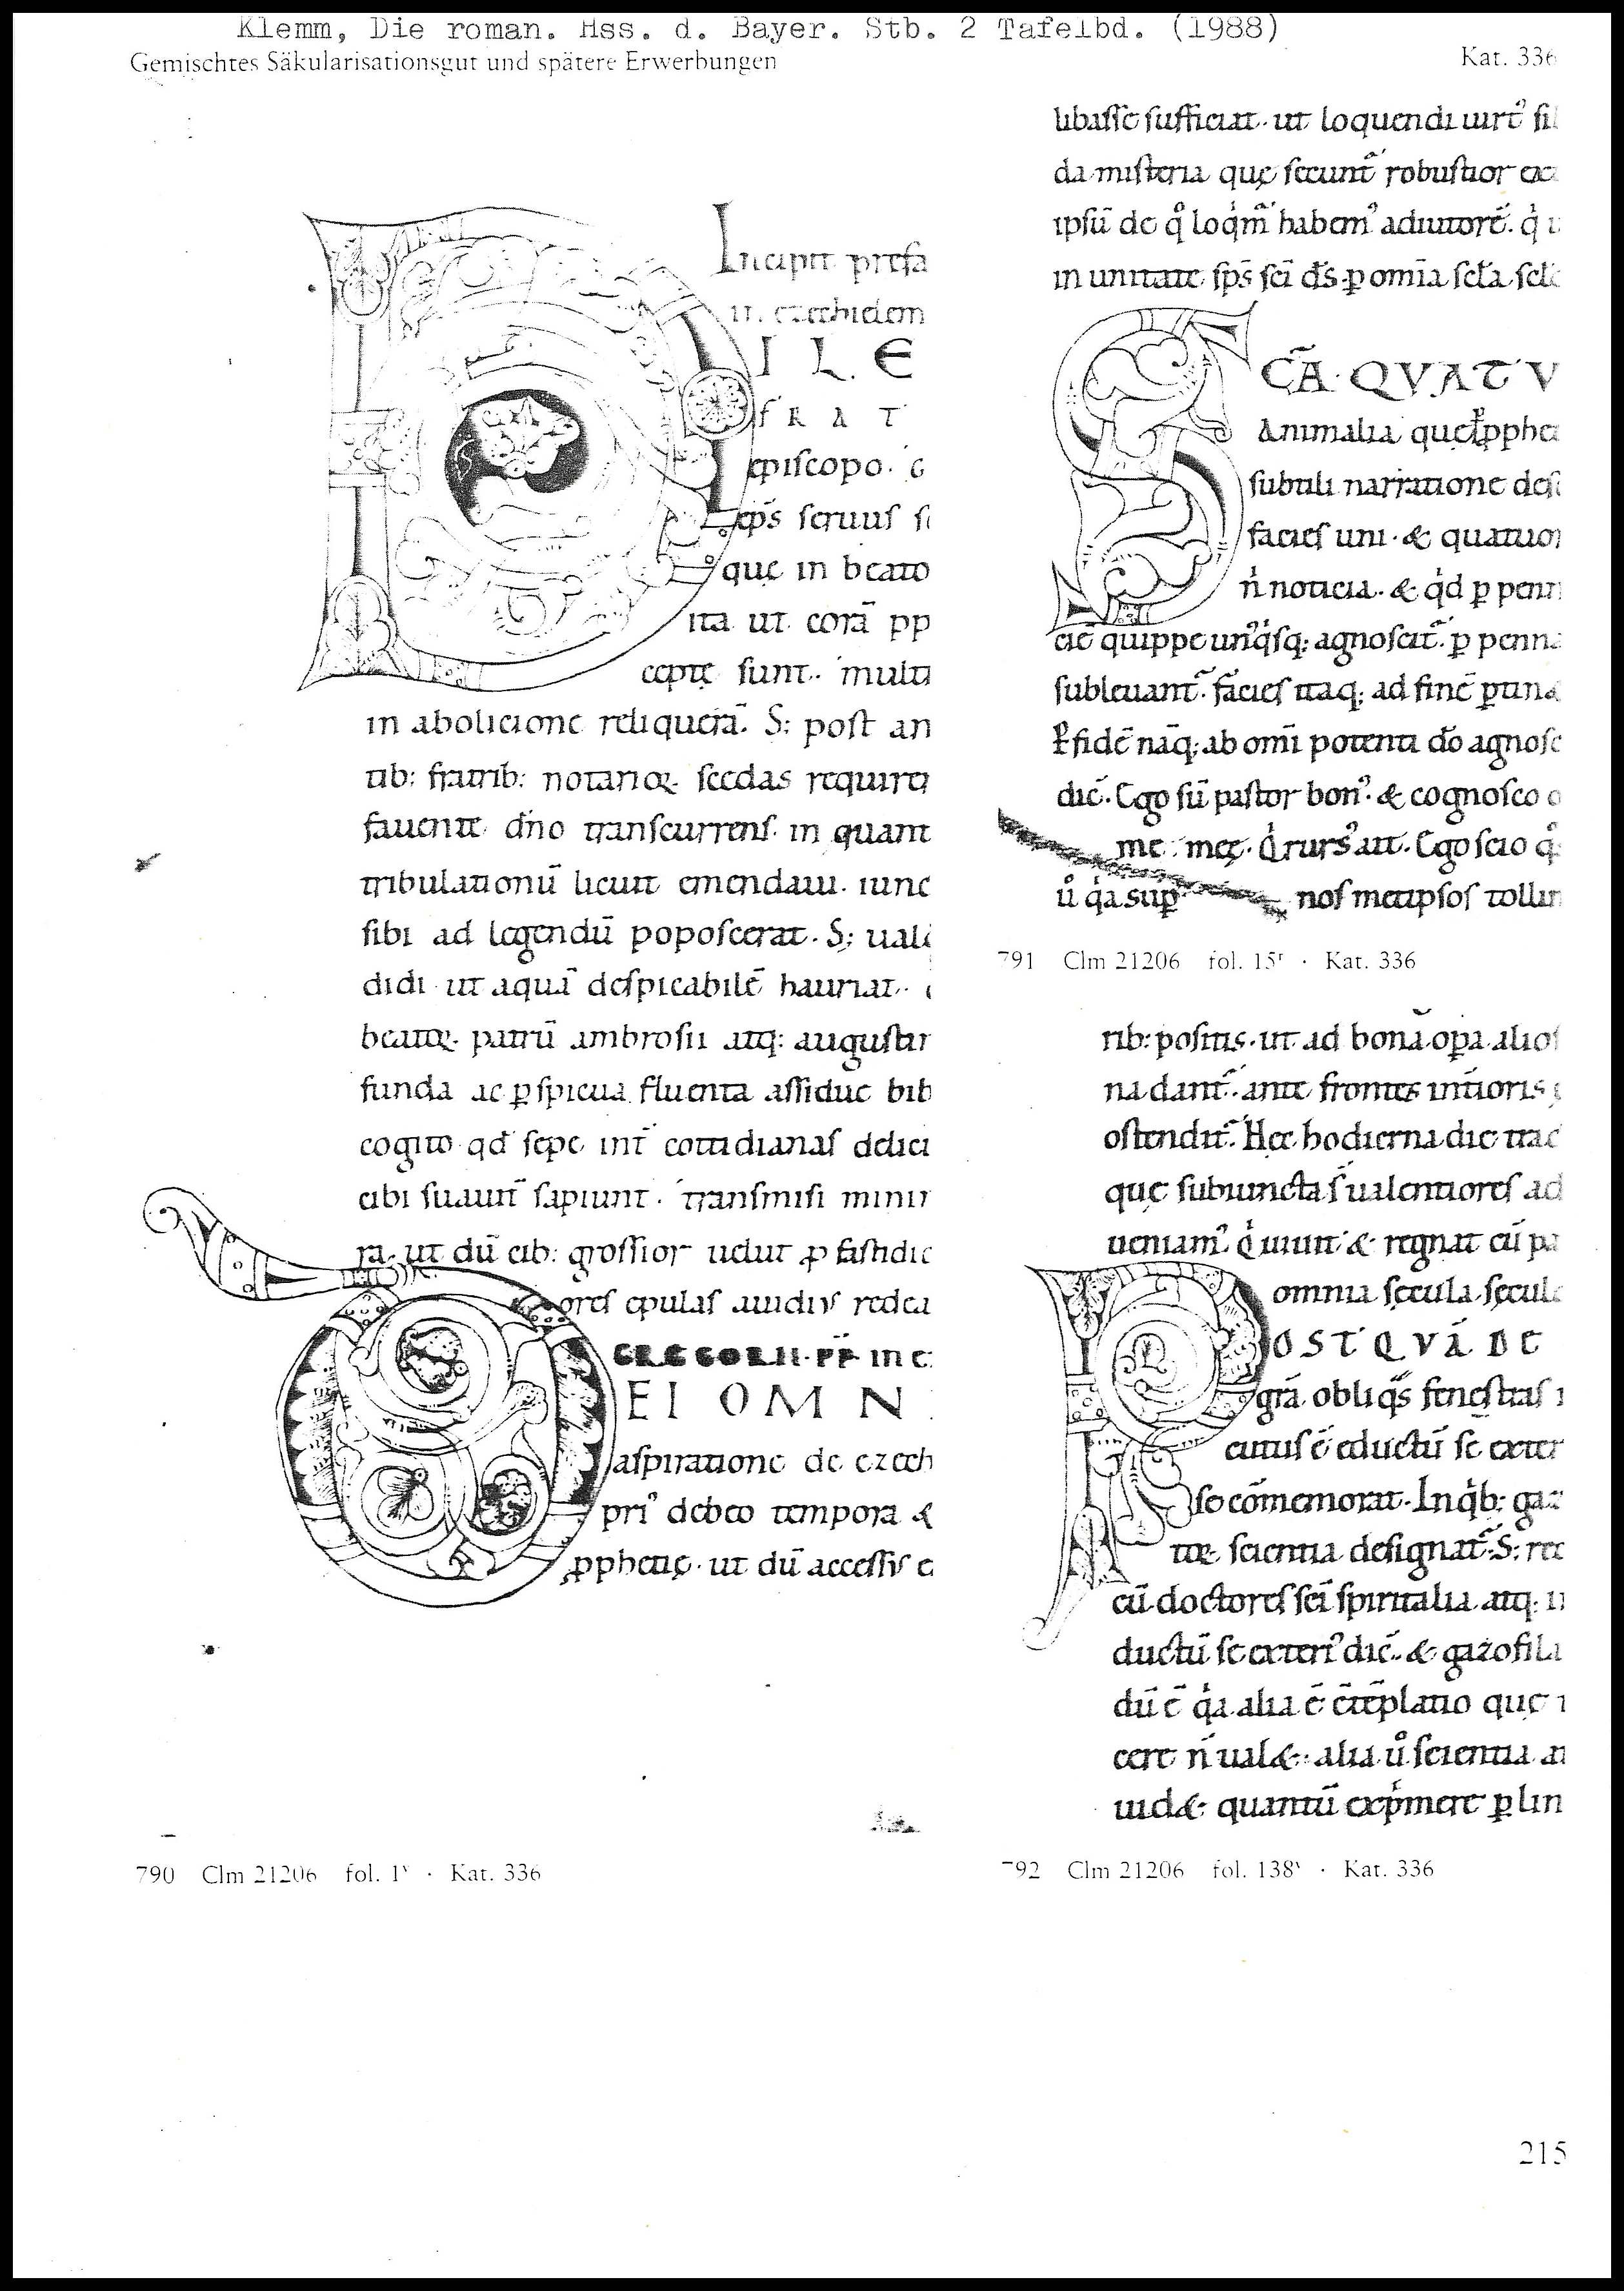 Klemm, Die roman. Hss. d. Bayer. Stb. 2 Tafelbd. (1988)
Gemischtes Säkularisationsgut und spätere Erwerbungen
Kat. 336
Incipit prefa
in ezechielem
I L E
F R A T
episcopo. G
ep̅s seruus
quę in beato
ita ut corā pp
ceptę sunt. multi
in abolicione reliquerā. S; post an
tib: fratrib: notarioꝝ scedas requirẽ
fauente dn̅o transcurrens. in quant
tribulationū licuit emendaui. iunc
sibi ad legendū poposcerat. S; uald
didi ut aquā despicabilē hauriat.
beatoꝝ. patrū ambrosii atq: augustin
funda ac ꝑspicua fluenta assidue bib
cogito qd̅ sepe int̅ cottidianas delici
cibi suauit̅ sapiunt. transmisi minim
ra. ut dū cib: grossior uelut ꝓ fastidio
ores epulas auidius redea
GREGORII. PP̅ in e
EI OMN
aspiratione de ezech
pri᷒ debeo tempora &
ꝓphetię. ut dū accessus e
790 Clm 21206 fol. 1ᵛ · Kat. 336
libasse sufficiat. ut loquendi uirt᷒
da misteria quę secunt᷒ robustior
ipsū de q̊ loq̇m̅ habem᷒ adiutorē. q̇
in unitate sp̅s sc̅i d̅s. ꝑ omīa sc̅la. scl̅
C̅A. QVATV
Animalia quę ꝓphe
subtili narratione des
facies uni. & quatuor
ṅ noticia. & q̇d ꝑ penn
cie quippe un᷒q̇sq; agnoscit᷒. ꝑ penna
subleuant᷒. facies itaq; ad finē ꝑtina
fidē nāq; ab omī potenti dō agnosc
dic̅. Ego sū pastor bon᷒. & cognosco
me meę. Q̇ rurs᷒ ait. Ego scio q̊
ů q̇a sup nos metipsos tollim
791 Clm 21206 fol. 15ʳ · Kat. 336
rib: positis. ut ad bona oꝑa alios
na dant᷒. ante frontes int̅ioris
ostendit᷒. Hec hodierna die trac
quę subiuncta s̅ ualentiores ad
ueniam᷒. Q̇ uiuit & regnat cū pa
omnia sęcula sęculo
OSTQVĀ DE
grā. obliq̇s fenestras
cutus ē eductū se exter
se cōmemorat. In q̇b: gaz
scientia designat᷒. S; rec
cū doctores sc̅i spiritalia atq: in
ductū se exteri᷒ dic̅. & gazofila
dū ē q̇a alia ē cōtēplatio quę
cere ṅ ualet. alia ů scientia
uidet. quantū exp̍mere ꝑ lin
792 Clm 21206 fol. 138ᵛ · Kat. 336
215